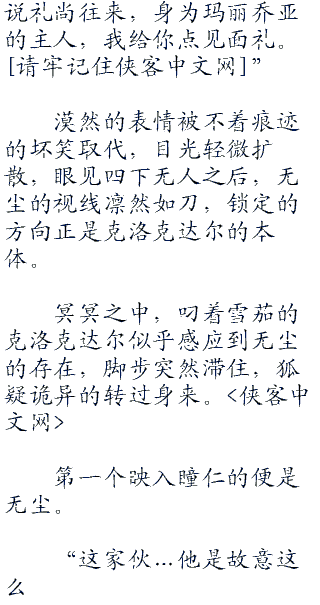 说礼尚往来，身为玛丽乔亚
的主人，我给你点见面礼。
[请牢记住侠客中文网]”
漠然的表情被不着痕迹
的坏笑取代，目光轻微扩
散，眼见四下无人之后，无
尘的视线凛然如刀，锁定的
方向正是克洛克达尔的本
体。
冥冥之中，叼着雪茄的
克洛克达尔似乎感应到无尘
的存在，脚步突然滞住，狐
疑诡异的转过身来。<侠客中
文网>
第一个映入瞳仁的便是
无尘。
“这家伙…他是故意这
么